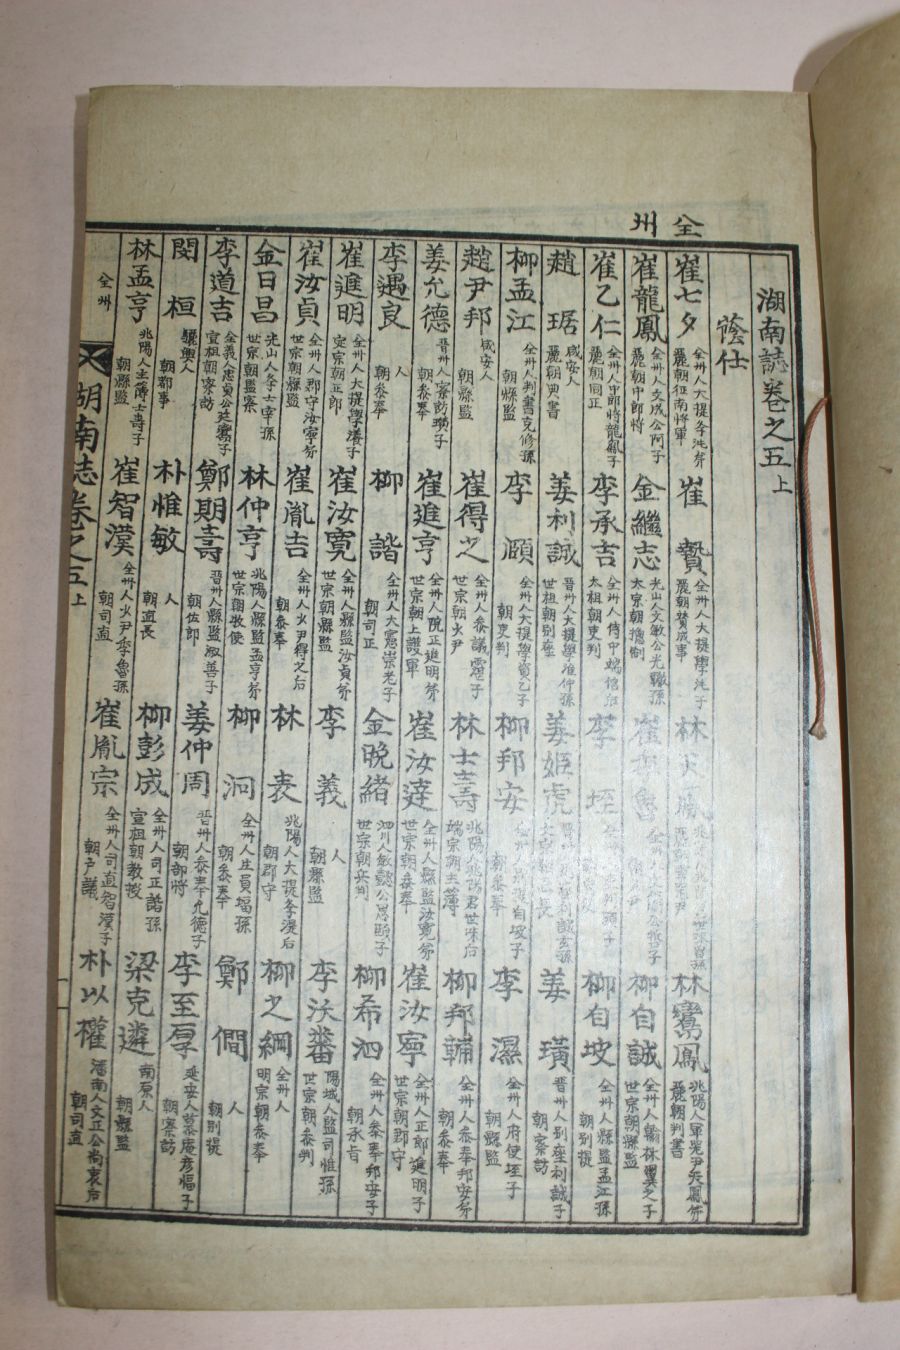 全州
湖南誌卷之五上
蔭仕
崔七夕 全州人大提學洔弟 麗朝征南將軍 崔贄 全州人大提學洔子 麗朝贊成事 林 林鸞鳳 兆陽人 麗朝判書
崔龍鳳 全州人文成公阿子 麗朝中郎將 金繼志 光山人文敏公光轍孫 太宗朝 崔 柳自誠 全州人翰林翼之子 世宗朝縣監
崔乙仁 全州人中郎將龍鳳子 麗朝同正 李承吉 全州人侍中 太祖朝吏判 李 柳自坡 全州人縣監孟江孫 朝別提
趙琚 咸安人 麗朝典書 姜利誠 晉州人大提學淮仲孫 世祖朝別座 姜姬虎 姜璜 晉州人別座利誠子 朝察訪
柳孟江 全州人判書克修孫 朝縣監 李頤 全州人大提學 子 朝吏判 柳邦安 自坡子 朝參奉 李濕 全州人府使垤子 朝縣監
趙尹邦 咸安人 朝縣監 崔得之 全州人參議霮子 世宗朝少尹 林士壽 兆陽人兆陽君世味后 端宗朝主簿 柳邦輔 全州人參奉邦安弟 朝參奉
姜允德 晉州人察訪璜子 朝參奉 崔進亨 全州人院正進明弟 世宗朝上護軍 崔汝達 全州人縣監汝寬弟 世宗朝參奉 崔汝寧 全州人正郎進明子 世宗朝郡守
李遇良 人 朝參奉 柳諧 全州人大憲崇老子 朝司正 金晩緖 泗川人敏懿公思頤子 世宗朝兵判 柳希泗 全州人參奉邦安子 朝承旨
崔進明 全州人大提學瀁子 定宗朝正郎 崔汝寬 全州人縣監汝貞弟 世宗朝縣監 李義 人 朝縣監 李沃蕃 陽城人監司惟孫 世宗朝參判
崔汝貞 全州人郡守汝寧弟 世宗朝縣監 崔胤吉 全州人少尹得之后 朝參奉 林表 兆陽人大提學湜后 朝郡守 柳之綱 全州人 明宗朝參奉
金日昌 光山人參士宰孫 世宗朝監察 林仲亨 兆陽人縣監孟亨弟 世宗朝牧使 柳泂 全州人生員塭孫 朝參奉 鄭僩 人 朝別提
李道吉 全義人忠貞公廷鸞子 宣祖朝察訪 鄭期壽 晉州人縣監淑善子 朝佐郎 姜仲周 晉州人參奉允德子 朝部將 李至厚 延安人慕庵彦愊子 朝察訪
閔桓 驪興人 朝郡事 朴惟敏 人 朝直長 柳彭成 全州人司正諧孫 宣祖朝敎授 梁克遴 南原人 朝縣監
林孟亨 兆陽人主簿士壽子 朝縣監 崔智漢 全州人少尹季魯孫 朝司直 崔胤宗 全州人司直智漢子 朝戶議 朴以權 潘南人文正公尙衷后 朝司直
全州 湖南誌卷之五上 一